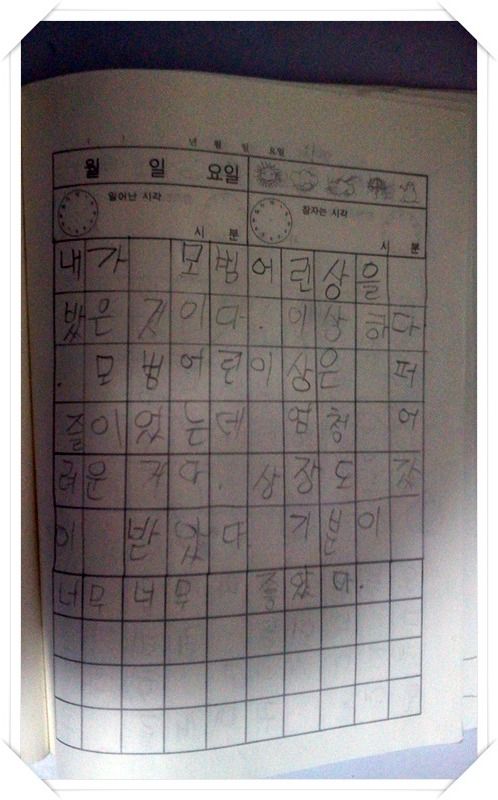 년 월 일 요일
월 일 요일
일어난 시각 잠자는 시각
시 분 시 분
내가 모범어린상을
밨은 것이다. 이상하다
. 모범어린이상은 퍼
즐이있는데 엄청 어
려운 거다. 상장도 같
이 받았다 기분이
너무너무 좋았다.